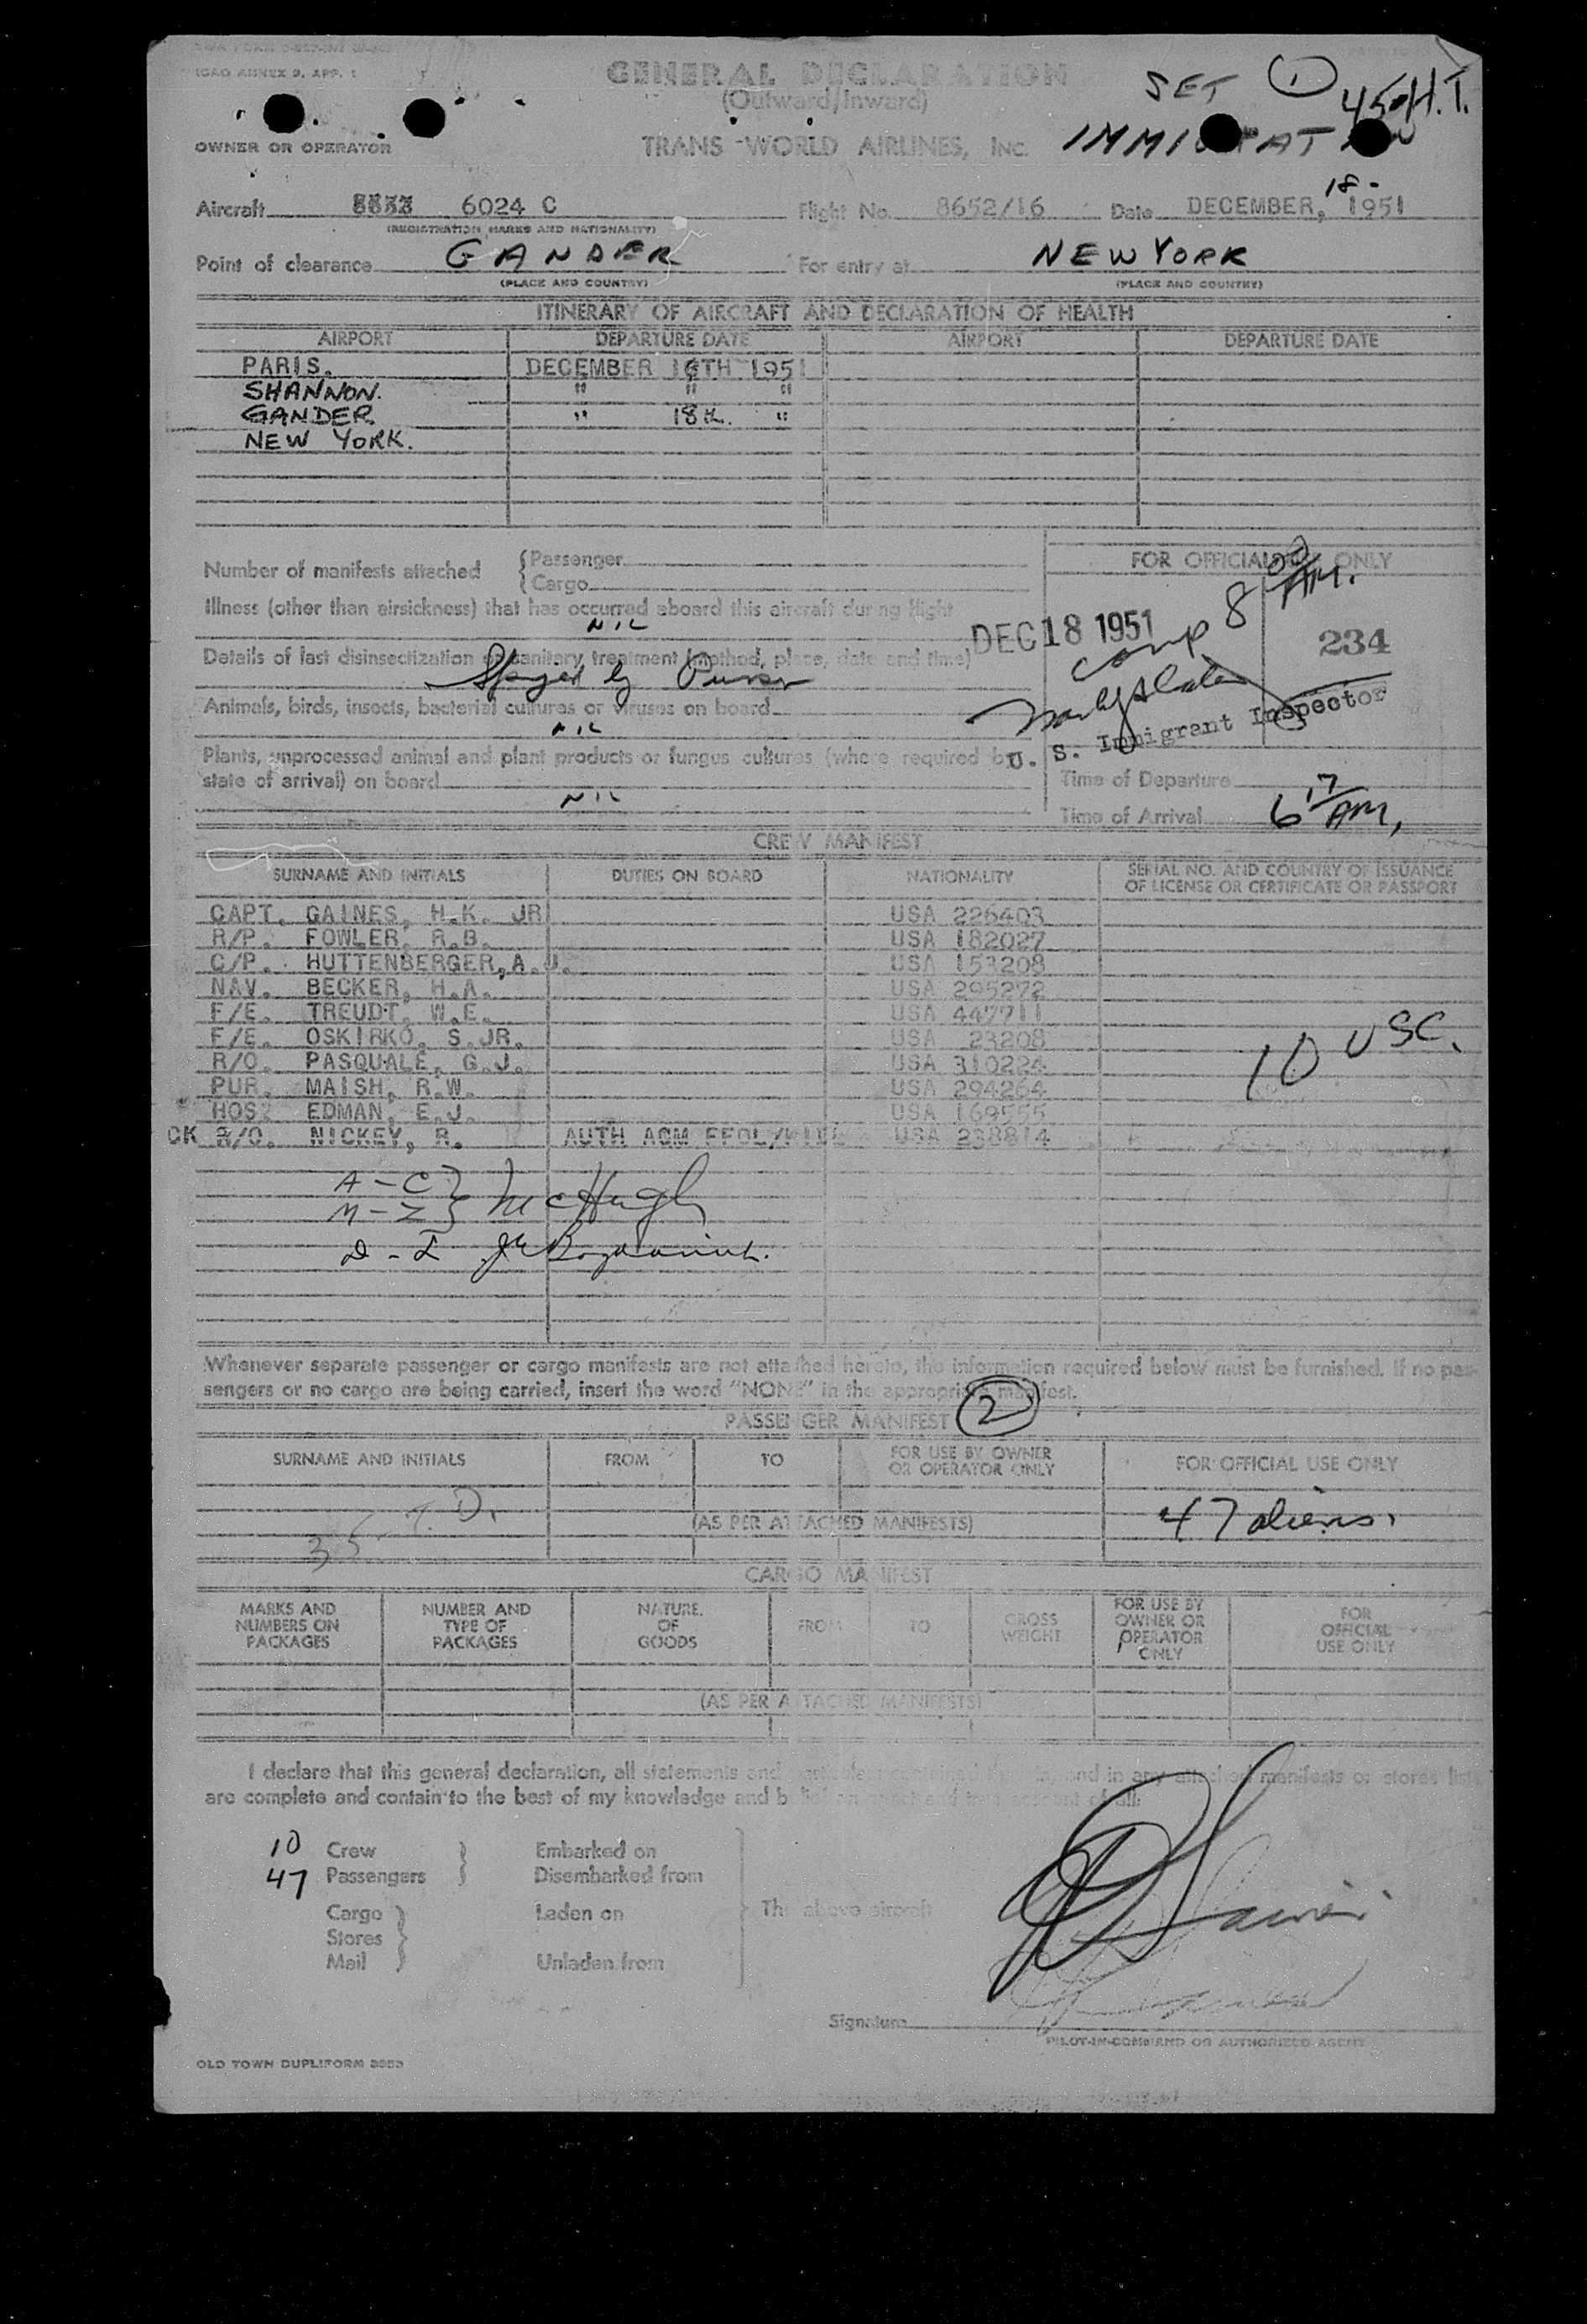 ICAO ANNEX 9, APP. 1
GENERAL DECLARATION
(Outward/Inward)
SET 1 45 H.T.
OWNER OR OPERATOR
TRANS WORLD AIRLINES, INC.
IMMIGRATION
Aircraft 6024 C Flight No. 8652/16 Date DECEMBER, 18- 1951
(REGISTRATION MARKS AND NATIONALITY)
Point of clearance GANDER For entry at NEW YORK
(PLACE AND COUNTRY) (PLACE AND COUNTRY)
ITINERARY OF AIRCRAFT AND DECLARATION OF HEALTH
AIRPORT DEPARTURE DATE AIRPORT DEPARTURE DATE
PARIS. DECEMBER 16TH 1951
SHANNON. " " "
GANDER " 18th. "
NEW YORK.
Number of manifests attached { Passenger
{ Cargo
FOR OFFICIAL USE ONLY
Illness (other than airsickness) that has occurred aboard this aircraft during flight
NIL
DEC 18 1951 comp 8 00 AM.
234
Details of last disinsectization or sanitary treatment (method, place, date and time)
Sprayed by Purser
Animals, birds, insects, bacterial cultures or viruses on board
NIL
U. S. Immigrant Inspector
Plants, unprocessed animal and plant products or fungus cultures (where required by
state of arrival) on board
NIL
Time of Departure
Time of Arrival 6 17 AM,
CREW MANIFEST
SURNAME AND INITIALS DUTIES ON BOARD NATIONALITY SERIAL NO. AND COUNTRY OF ISSUANCE OF LICENSE OR CERTIFICATE OR PASSPORT
CAPT. GAINES, H.K. JR USA 226403
R/P. FOWLER, R.B. USA 182027
C/P. HUTTENBERGER, A.J. USA 153208
NAV. BECKER, H.A. USA 295272
F/E. TREUDT, W.E. USA 447711
F/E. OSKIRKO, S.JR. USA 23208
R/O. PASQUALE, G.J. USA 310224
PUR. MAISH, R.W. USA 294264
HOS. EDMAN, E.J. USA 169555
CK R/O. NICKEY, R. AUTH ACM USA 238814
10 USC.
A - C }
M - Z } McHugh
D - L
Whenever separate passenger or cargo manifests are not attached hereto, the information required below must be furnished. If no pas-
sengers or no cargo are being carried, insert the word "NONE" in the appropriate manifest.
PASSENGER MANIFEST 2
SURNAME AND INITIALS FROM TO FOR USE BY OWNER OR OPERATOR ONLY FOR OFFICIAL USE ONLY
35 T.D.
(AS PER ATTACHED MANIFESTS)
47 aliens.
CARGO MANIFEST
MARKS AND NUMBERS ON PACKAGES NUMBER AND TYPE OF PACKAGES NATURE OF GOODS FROM TO GROSS WEIGHT FOR USE BY OWNER OR OPERATOR ONLY FOR OFFICIAL USE ONLY
(AS PER ATTACHED MANIFESTS)
I declare that this general declaration, all statements and particulars contained herein, and in any attached manifests or stores lists
are complete and contain to the best of my knowledge and belief an exact and true account of all:
10 Crew } Embarked on
47 Passengers } Disembarked from
Cargo } Laden on The above aircraft
Stores }
Mail } Unladen from
Signature
PILOT-IN-COMMAND OR AUTHORIZED AGENT
OLD TOWN DUPLIFORM